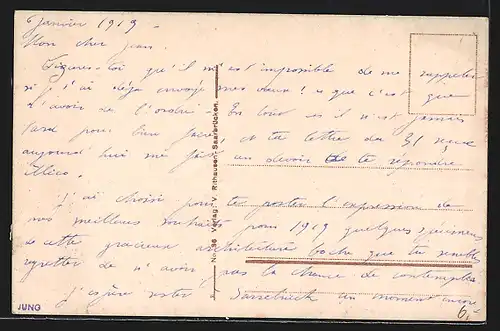 6 Janvier 1919 -
Mon cher Jean.
Figures-toi qu'il m'est impossible de me rappeler
si j'ai déjà envoyé mes vœux ! ce que c'est que
n'avoir de l'ordre - En tout cas il n'est jamais
tard pour bien faire, et ta lettre du 31 reçue
aujourd'hui me fait un devoir de te répondre
illico.
J'ai choisi pour te porter l'expression de
mes meilleurs souhaits pour 1919 quelques spécimens
de cette gracieuse architecture boche que tu sembles
regretter de n'avoir pas la chance de contempler
J'espère rester Sarrebrück un moment encore
No. 36 Verlag: V. Rithausen Saarbrücken.
JUNG
6,-